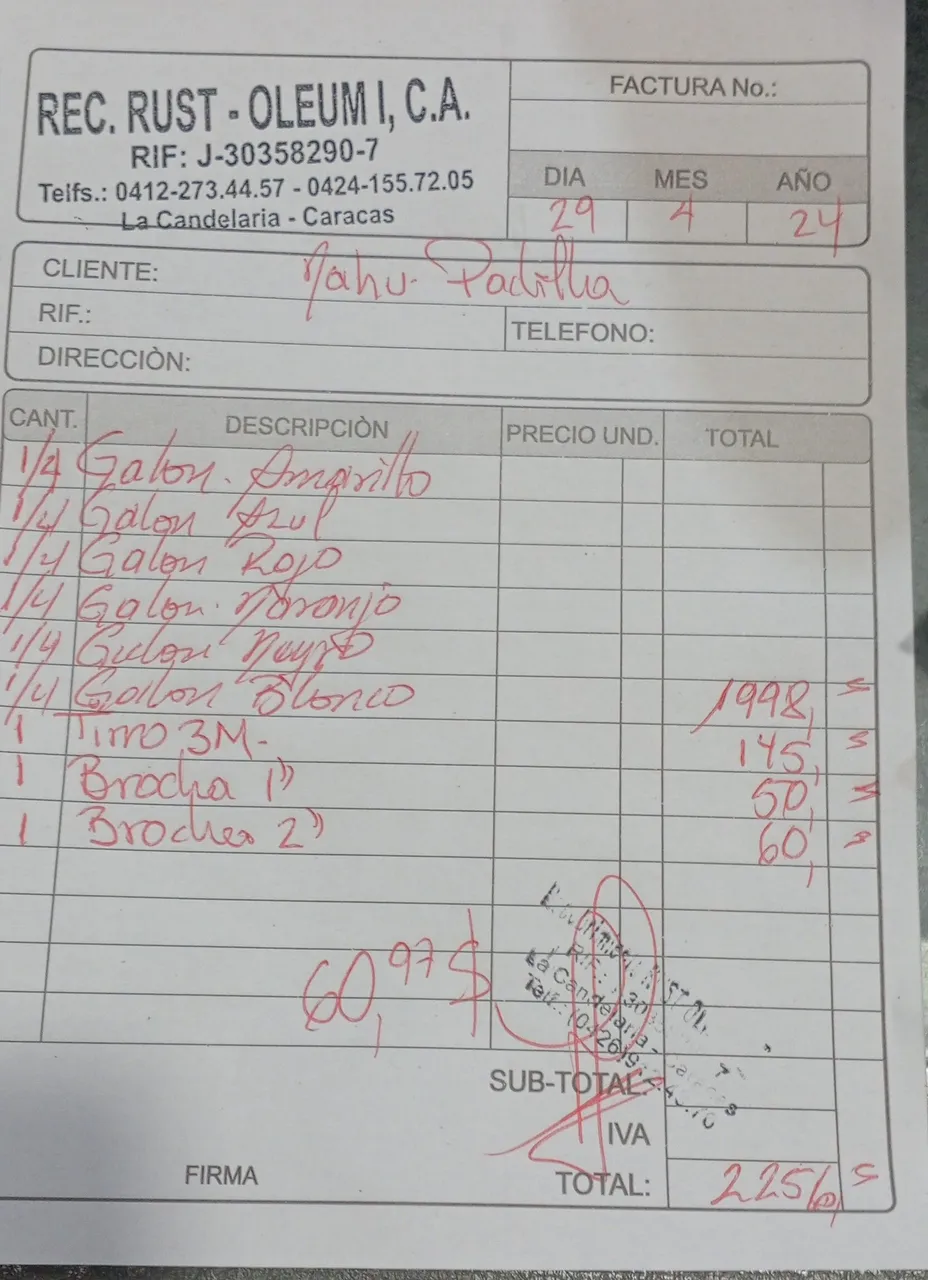 REC. RUST - OLEUM I, C.A.
RIF: J-30358290-7
Telfs.: 0412-273.44.57 - 0424-155.72.05
La Candelaria - Caracas
FACTURA No.:
DIA MES AÑO
29 4 24
CLIENTE: Nahu Padilla
RIF.:
TELEFONO:
DIRECCIÒN:
CANT. DESCRIPCIÒN PRECIO UND. TOTAL
1/4 Galon. Amarillo
1/4 Galon Azul
1/4 Galon Rojo
1/4 Galon. Naranjo
1/4 Galon Negro
1/4 Galon Blanco 1998,
1 Tirro 3M- 145,
1 Brocha 1" 50,
1 Brocha 2" 60,
60,97 $
RIF.:
La Candelaria - Caracas
Telf.:
SUB-TOTAL:
IVA
FIRMA
TOTAL: 2256,